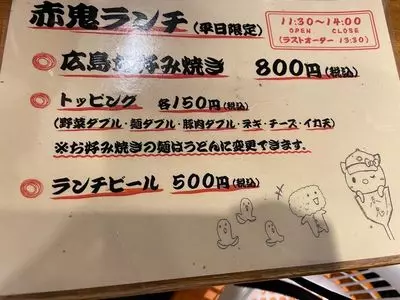 赤鬼ランチ (平日限定)
11:30～14:00
OPEN CLOSE
(ラストオーダー 13:30)
広島お好み焼き 800円(税込)
トッピング 各150円(税込)
(野菜ダブル・麺ダブル・豚肉ダブル・ネギ・チーズ・イカ天)
※お好み焼きの麺はうどんに変更できます.
ランチビール 500円(税込)
赤鬼